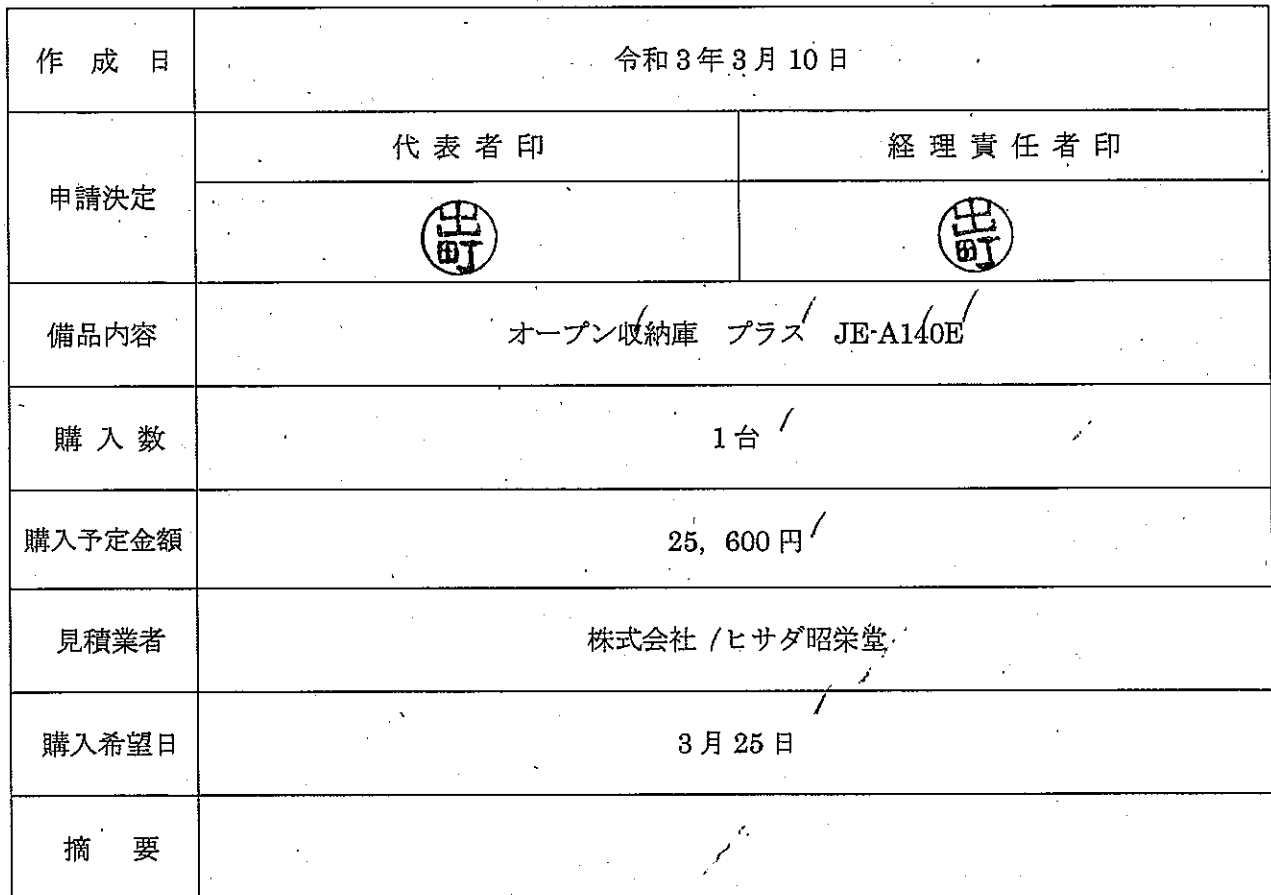 作成日 令和3年3月10日
申請決定 代表者印 経理責任者印
出町 出町
備品内容 オープン収納庫 プラス JE-A140E
購入数 1台
購入予定金額 25,600円
見積業者 株式会社 ヒサダ昭栄堂
購入希望日 3月25日
摘要